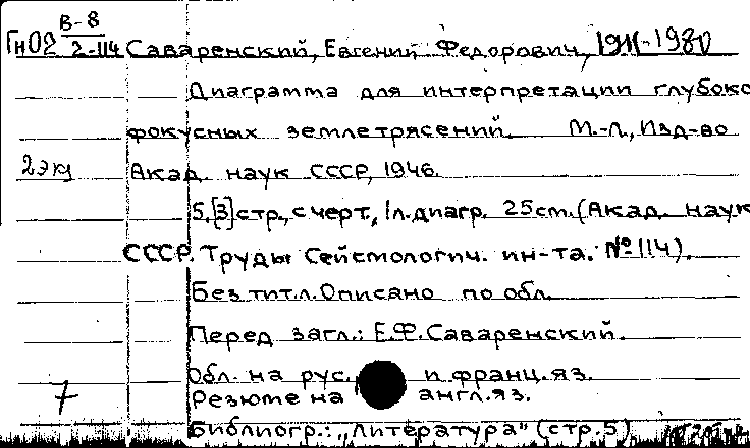 В-8
ГнО2 2-114 Саваренский, Евгений Федорович, 1911-1980
Диаграмма для интерпретации глубоко
фокусных землетрясений. М.-Л., Изд-во
2экз Акад. наук СССР, 1946.
5,[3]стр., с черт., 1л.диагр. 25cm.(Акад. наук
СССР. Труды Сейсмологич. ин-та. №114).
Без тит.л. Описано по обл.
Перед загл.: Е.Ф.Саваренский.
Обл. на рус. и франц.яз.
7 Резюме на англ.яз.
Библиогр.: „Литература" (стр.5)